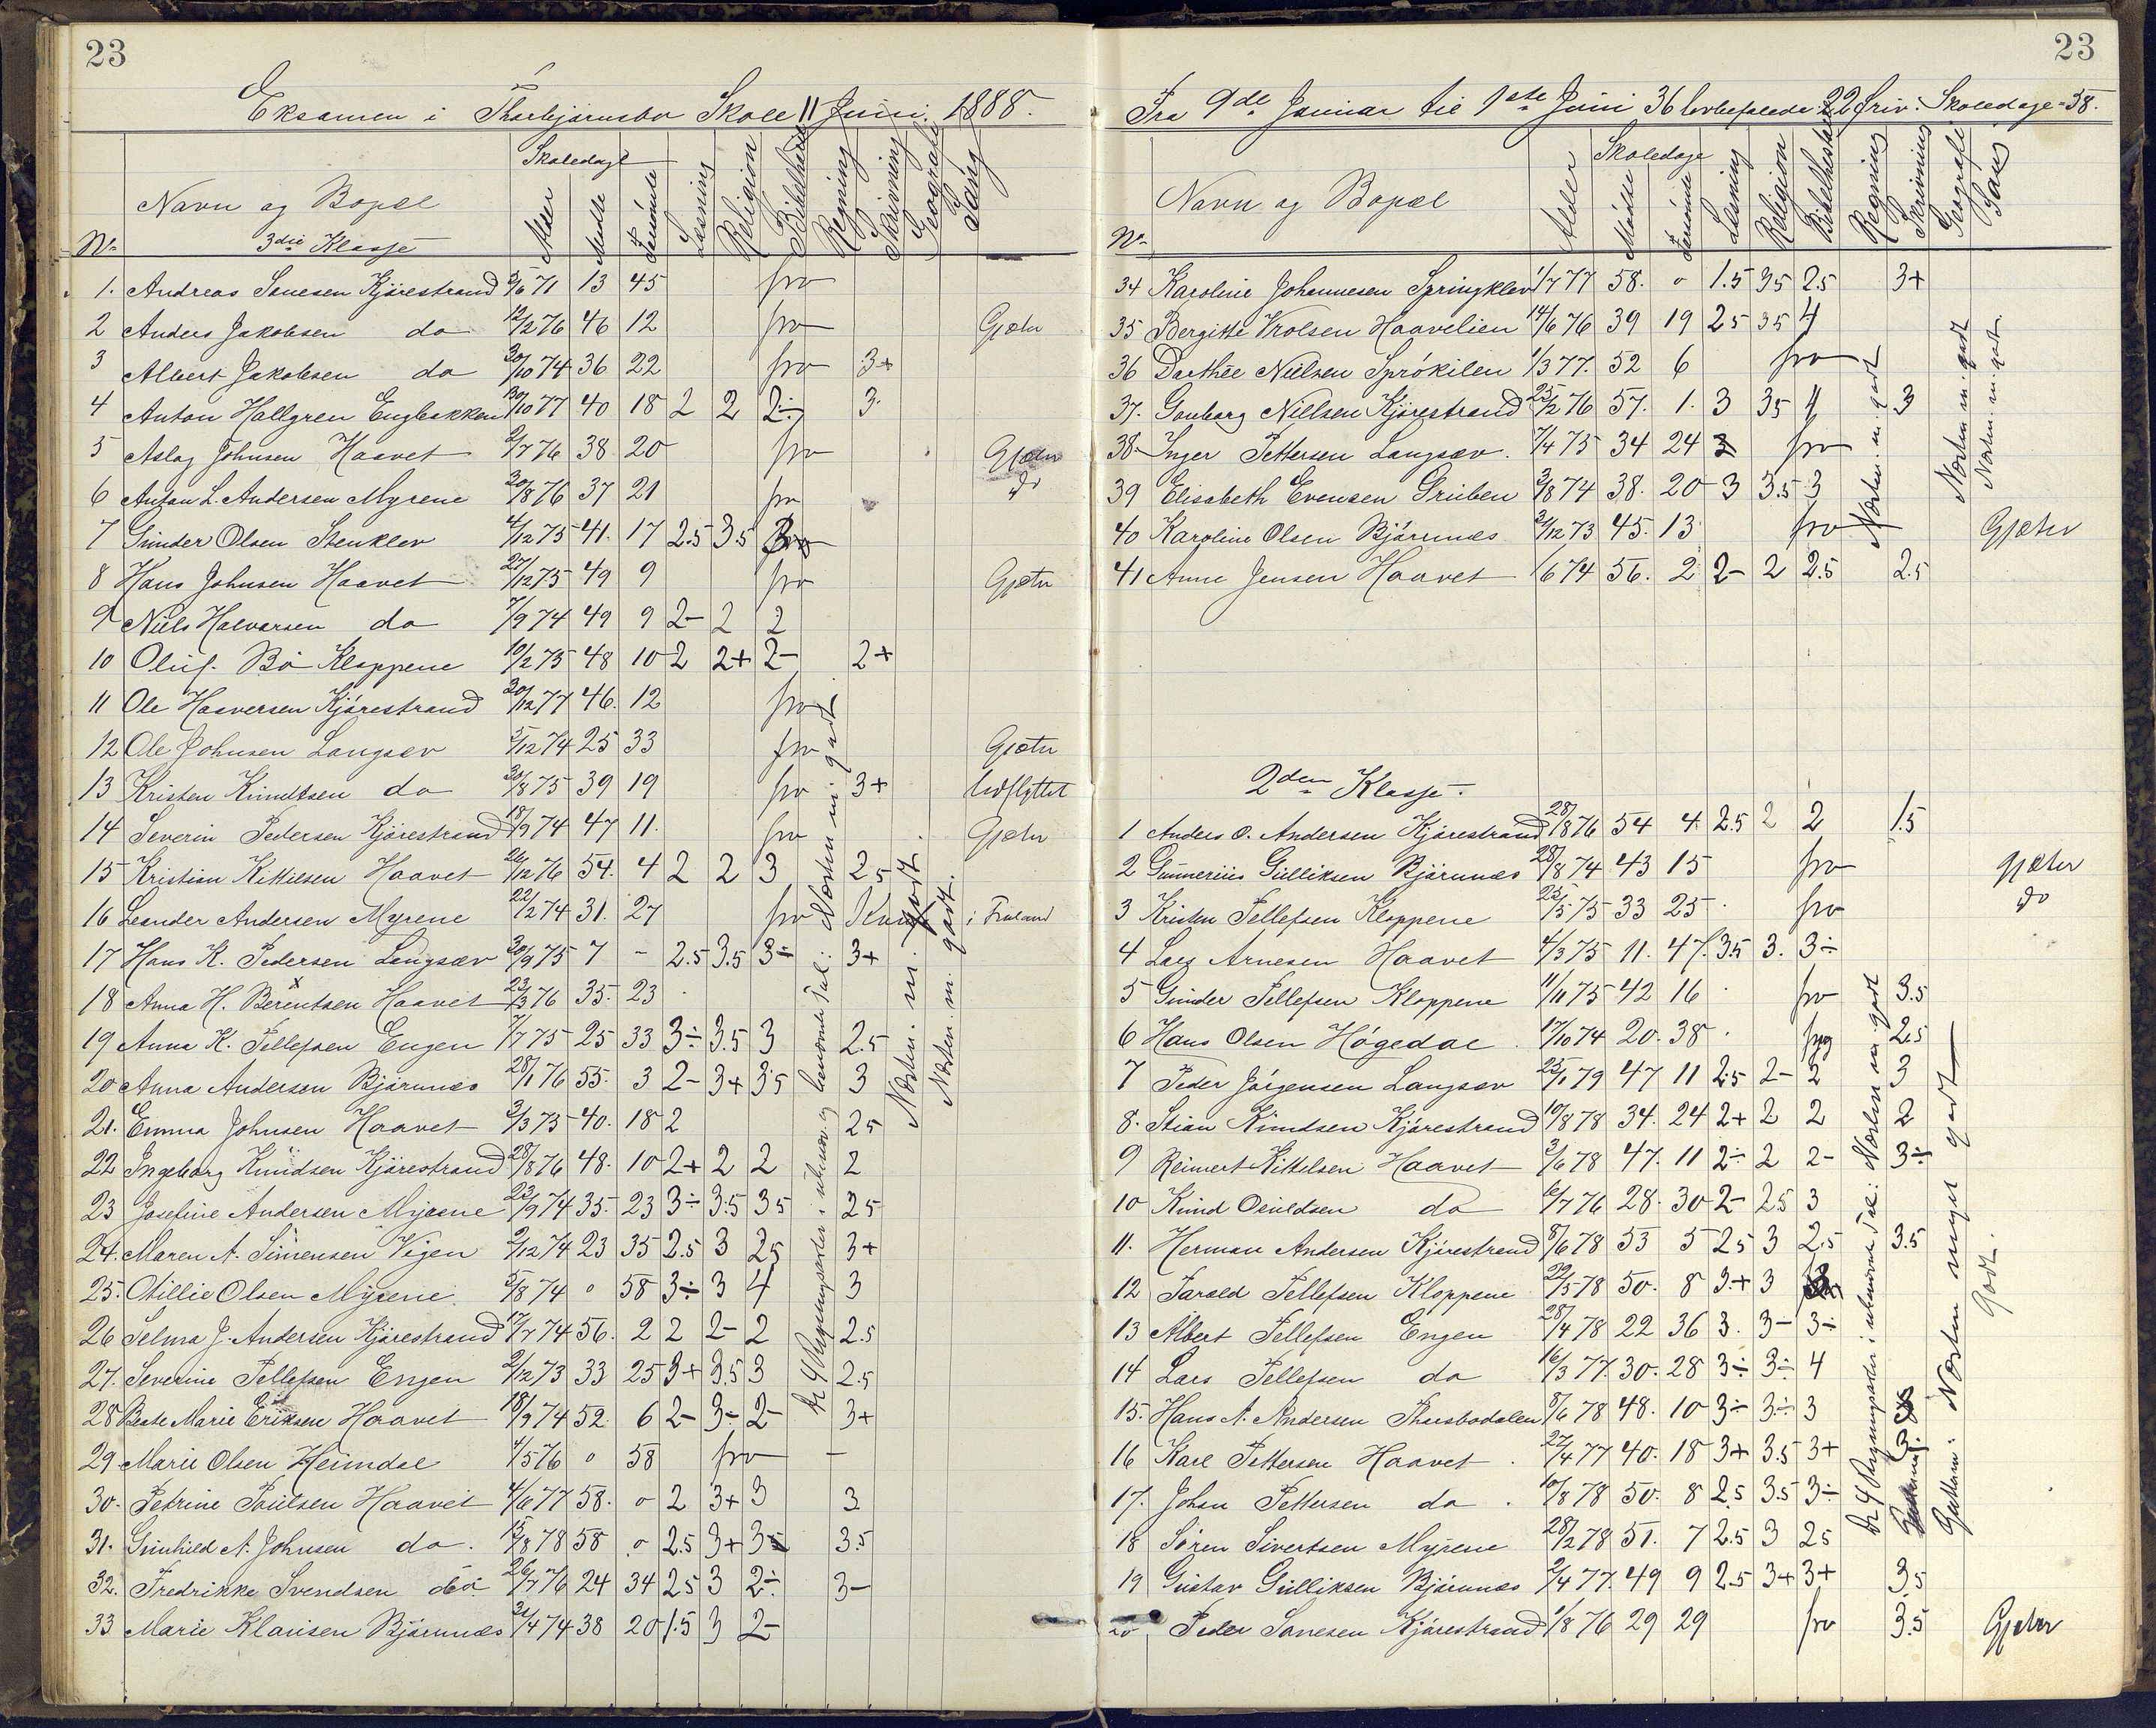 23
Eksamen i Thorbjørnsbo Skole 11 Juni 1888.
Skoledage
Nr Navn og Bopæl Alder Mødte Forsømte Læsning Religion Bibelhistorie Regning Skrivning Geografi Sang
3die Klasse
1. Andreas Kjørestrand 5/6 71 13 45 frv
2 Anders Jakobsen do 12/2 76 46 12 frv Gjæter
3 Albert Jakobsen do 30/10 74 36 22 frv 3+
4 Anton Hallgren Engbakken 30/10 77 40 18 2 2 2÷ 3
5 Aslag Johnsen Haavet 2/7 76 38 20 frv Gjæter
6 Anton L. Andersen Myrene 20/8 76 37 21 frv do
7 Gunder Olsen Stenklev 4/12 75 41 17 2.5 3.5
8 Hans Johnsen Haavet 27/12 75 49 9 frv Gjæter
9 Niels Halvorsen do 7/9 74 49 9 2- 2 2
10 Oluf Bø Kloppene 10/2 75 48 10 2 2+ 2- 2+
11 Ole Haaversen Kjørestrand 30/12 77 46 12 frv
12 Ole Johnsen Langsæv 5/12 74 25 33 frv Gjæter
13 Kristen Knudtsen do 30/8 75 39 19 frv 3+ Udflyttet
14 Severin Pedersen Kjørestrand 18/9 74 47 11 frv Gjæter
15 Kristian Kittelsen Haavet 26/12 76 54 4 2 2 3 2.5
16 Leander Andersen Myrene 22/2 74 31 27 frv i Froland
17 Hans K. Pedersen Langsæv 30/9 75 7 - 2.5 3.5 3÷ 3+
18 Anna H. Berentsen Haavet 23/3 76 35 23
19 Anna K. Tellefsen Engen 7/7 75 25 33 3÷ 3.5 3 2.5
20 Anna Andersen Bjørnnes 28/1 76 55 3 2- 3+ 3.5 3
21. Emma Johnsen Haavet 3/3 75 40 18 2 2.5
22 Ingeborg Knudsen Kjørestrand 28/8 76 48 10 2+ 2 2 2
23 Josefine Andersen Myrene 23/9 74 35 23 3÷ 3.5 3.5 2.5
24. Maren A. Simensen Vigen 2/12 74 23 35 2.5 3 2.5 3+
25. Millie Olsen Myrene 5/8 74 0 58 3÷ 3 4 3
26 Selma J. Andersen Kjørestrand 17/7 74 56 2 2 2- 2 2.5
27. Severine Tellefsen Engen 2/12 73 33 25 3+ 3.5 3 2.5
28 Beate Marie Eriksen Haavet 18/9 74 52 6 2- 3÷ 2- 3+
29 Marie Olsen Heimdal 4/5 76 0 58 frv -
30. Petrine Poulsen Haavet 4/6 77 58 0 2 3+ 3 3
31. Gunhild A. Johnsen do 15/8 78 58 0 2.5 3+ 3 3.5
32. Fredrikke Svendsen do 26/7 76 24 34 2.5 3 2÷ 3-
33 Marie Klausen Bjørnnes 21/4 74 38 20 1.5 3 2-
De 4 Regningsarter i ubenævnte Tal: Næsten m. godt
Næsten m. godt
Næsten m. godt.
23
Fra 9de Januar til 1ste Juni 36 lovbefalede 22 friv: Skoledage = 58.
Skoledage
Nr Navn og Bopæl Alder Mødte Forsømte Læsning Religion Bibelhistorie Regning Skrivning Geografi Sang
34 Karoline Johannesen Springklev 1/7 77 58 0 1.5 3.5 2.5 3+
35 Bergitte Olsen Haavelien 14/6 76 39 19 2.5 3.5 4
36 Dorthee Nielsen Sprøkilen 1/3 77 52 6 frv
37. Gonborg Nielsen Kjørestrand 25/2 76 57 1 3 3.5 4 3
38 Inger Pettersen Langsæv 7/4 75 34 24 frv
39 Elisabeth Evensen Gruben 3/8 74 38 20 3 3.5 3
40 Karoline Olsen Bjørnnes 31/12 73 45 13 frv Gjæter
41 Anne Jensen Haavet 1/6 74 56 2 2- 2 2.5 2.5
Næsten m. godt
Næsten m. godt
Næsten m. godt.
2den Klasse.
1 Anders O. Andersen Kjørestrand 28/8 76 54 4 2.5 2 2 1.5
2 Gunnerius Gulliksen Bjørnnes 28/8 74 43 15 frv Gjæter
3 Kristen Tellefsen Kloppene 25/5 75 33 25 frv do
4 Lars Arnesen Haavet 4/3 75 11 47 3.5 3 3÷
5 Gunder Tellefsen Kloppene 11/11 75 42 16 frv 3.5
6 Hans Olsen Høgedal 17/10 74 20 38 syg 2.5
7 Peder Jørgensen Langsæv 25/1 79 47 11 2.5 2- 2 3
8. Stian Knudsen Kjørestrand 10/8 78 34 24 2+ 2 2 2
9 Reinert Kittelsen Haavet 3/6 78 47 11 2÷ 2 2- 3÷
10 Knud Osuldsen do 6/7 76 28 30 2- 2.5 3
11. Herman Andersen Kjørestrand 8/6 78 53 5 2.5 3 2.5 3.5
12 Tarald Tellefsen Kloppene 22/5 78 50 8 3+ 3
13 Albert Tellefsen Engen 28/4 78 22 36 3 3- 3÷
14 Lars Tellefsen do 16/3 77 30 28 3÷ 3÷ 4
15. Hans A. Andersen Thorsbodalen 8/6 78 48 10 3÷ 3÷ 3
16 Karl Pettersen Haavet 27/4 77 40 18 3+ 3.5 3+ 3
17. Johan Pettersen do 10/8 78 50 8 2.5 3.5 3÷
18 Søren Sivertsen Myrene 28/2 78 51 7 2.5 3 2.5
19 Gustav Gulliksen Bjørnnes 2/4 77 49 9 2.5 3+ 3+ 3.5
20 Peder Kjørestrand 1/8 76 29 29 frv 3.5 Gjæter
De 4 Regningsarter i ubenævnte Tal: Næsten m. godt
Næsten meget godt
Godt.